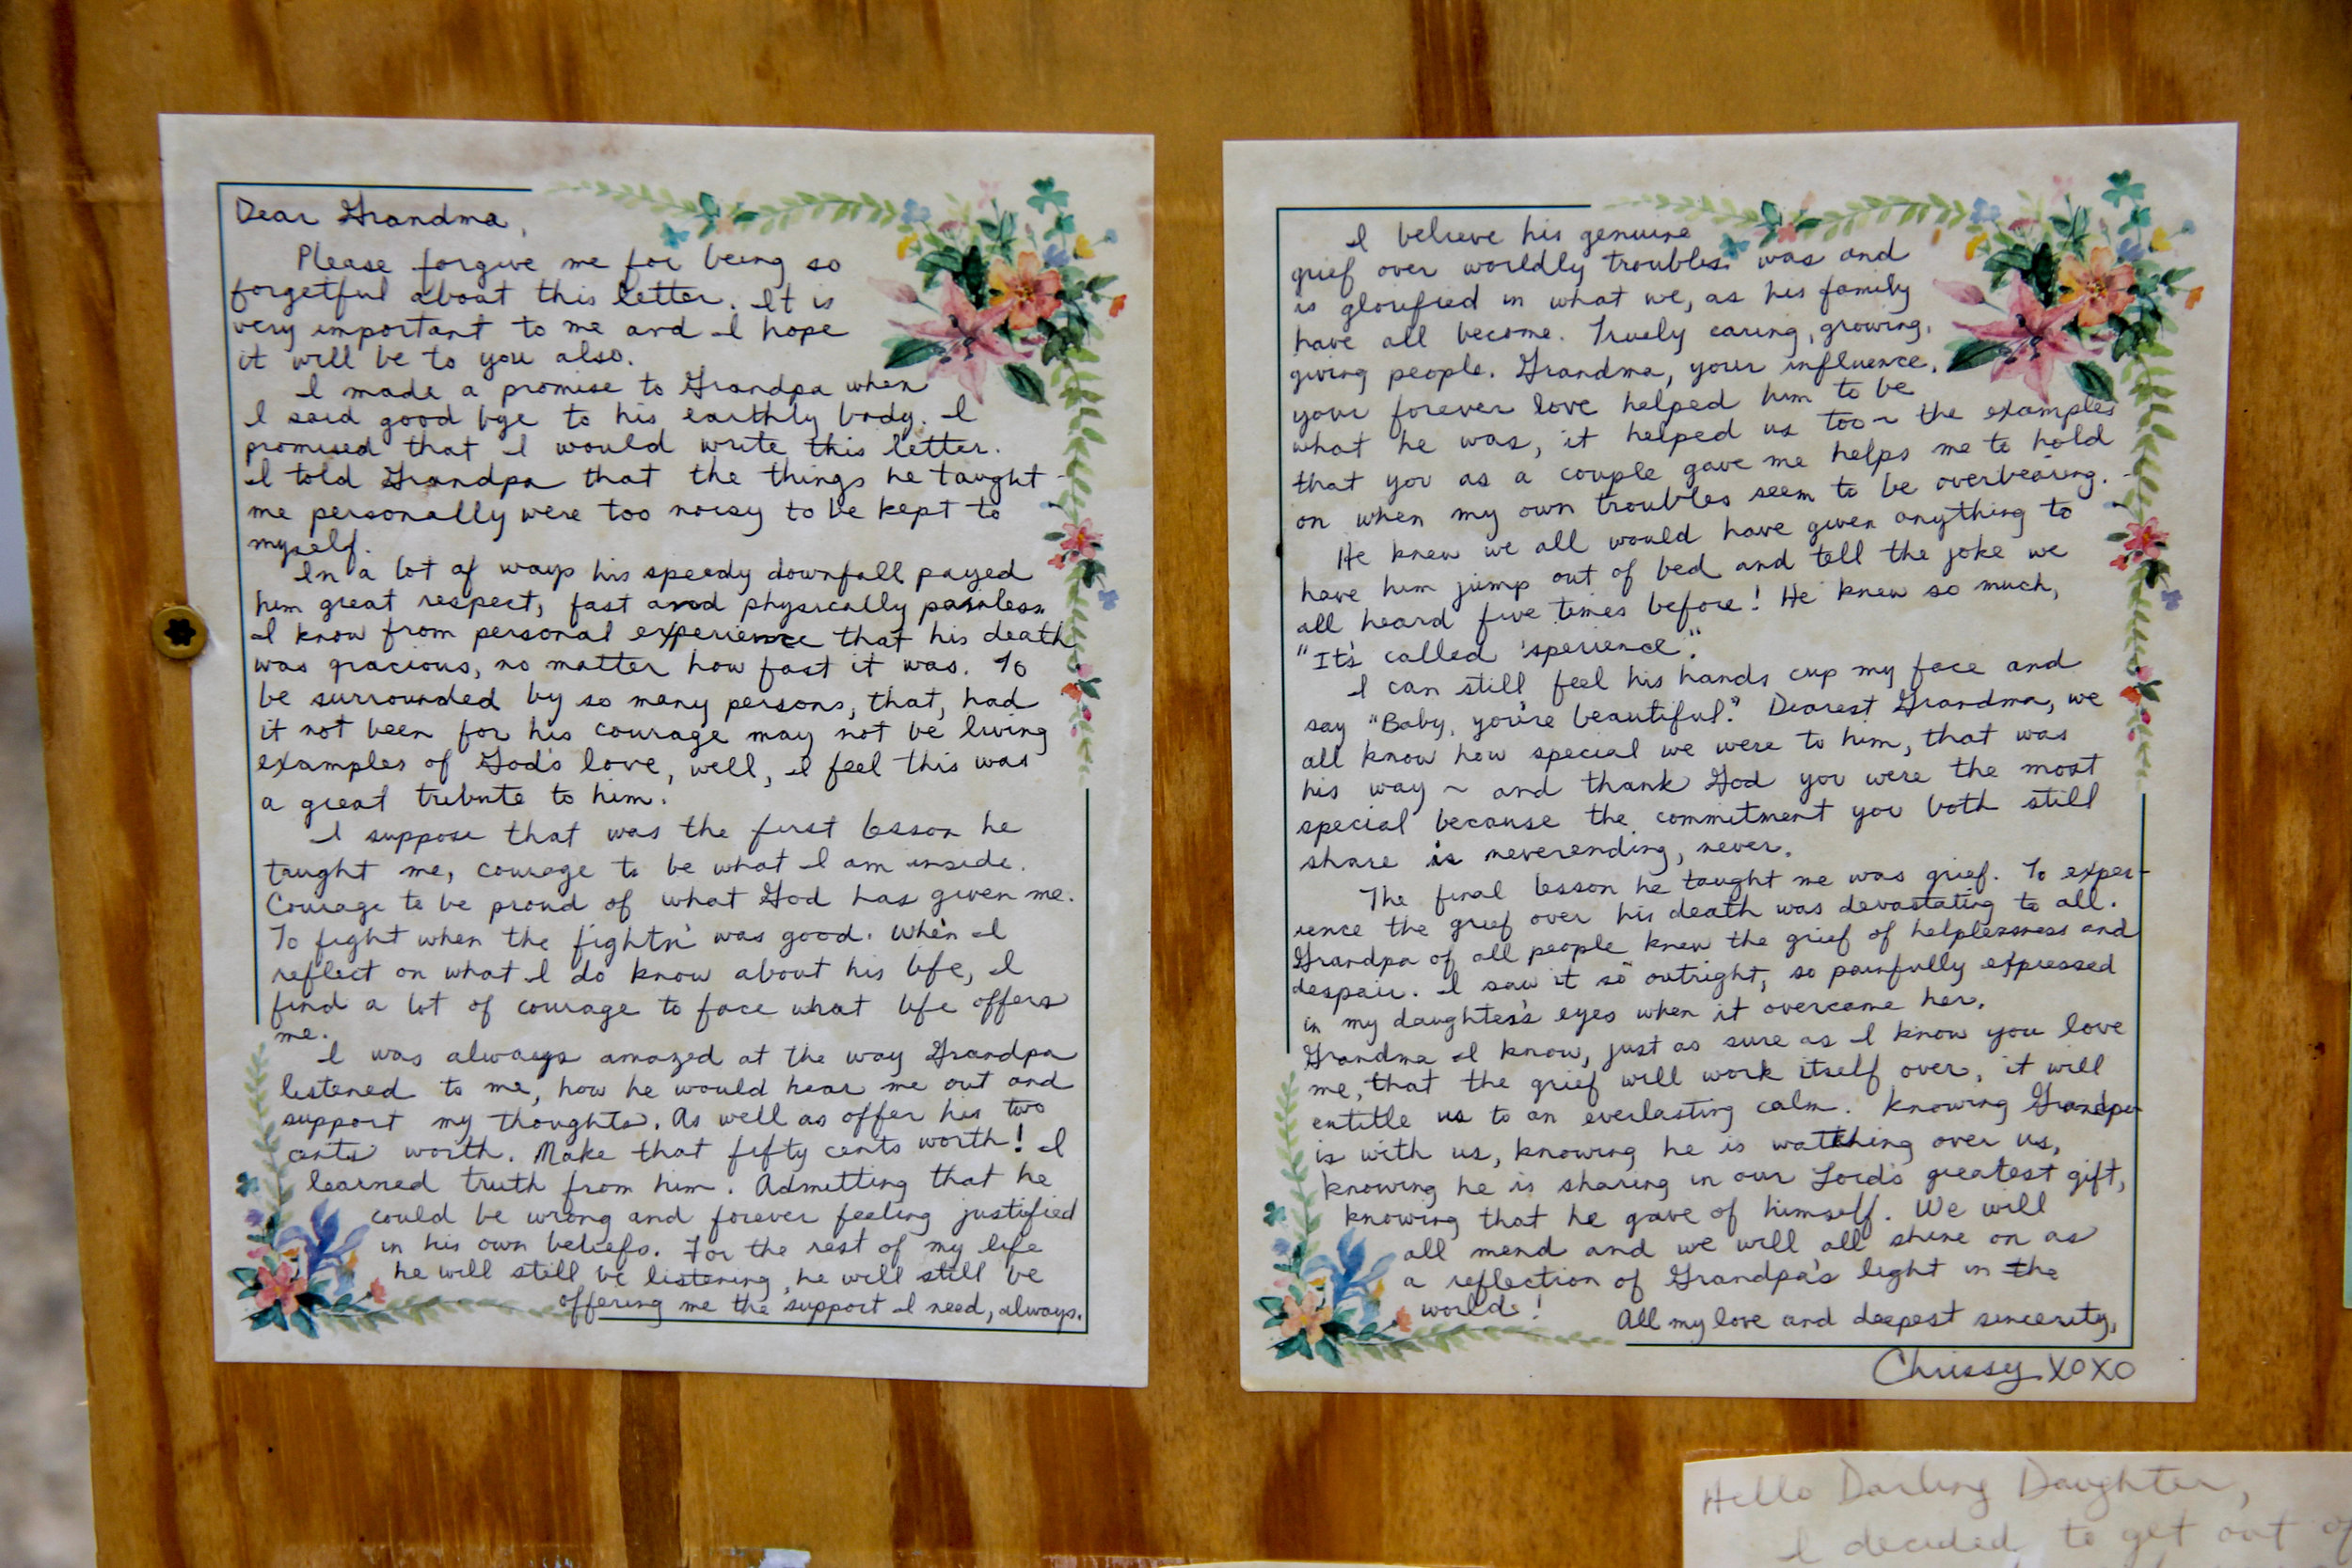 Dear Grandma,
Please forgive me for being so
forgetful about this letter. It is
very important to me and I hope
it will be to you also.
I made a promise to Grandpa when
I said good bye to his earthly body. I
promised that I would write this letter.
I told Grandpa that the things he taught
me personally were too noisy to be kept to
myself.
In a lot of ways his speedy downfall payed
him great respect, fast and physically painless.
I know from personal experience that his death
was gracious, no matter how fast it was. To
be surrounded by so many persons, that, had
it not been for his courage may not be living
examples of God's love, well, I feel this was
a great tribute to him.
I suppose that was the first lesson he
taught me, courage to be what I am inside.
Courage to be proud of what God has given me.
To fight when the fightn' was good. When I
reflect on what I do know about his life, I
find a lot of courage to face what life offers
me.
I was always amazed at the way Grandpa
listened to me, how he would hear me out and
support my thoughts. As well as offer his two
cents worth. Make that fifty cents worth! I
learned truth from him. Admitting that he
could be wrong and forever feeling justified
in his own beliefs. For the rest of my life
he will still be listening, he will still be
offering me the support I need, always.
I believe his genuine
grief over worldly troubles was and
is glorified in what we, as his family
have all become. Truely caring, growing,
giving people. Grandma, your influence,
your forever love helped him to be
what he was, it helped us too ~ the examples
that you as a couple gave me helps me to hold
on when my own troubles seem to be overbearing.
He knew we all would have given anything to
have him jump out of bed and tell the joke we
all heard five times before! He knew so much,
"It's called 'sperience".
I can still feel his hands cup my face and
say "Baby, you're beautiful." Dearest Grandma, we
all know how special we were to him, that was
his way ~ and thank God you were the most
special because the commitment you both still
share is neverending, never.
The final lesson he taught me was grief. To exper-
ience the grief over his death was devastating to all.
Grandpa of all people knew the grief of helplessness and
despair. I saw it so outright, so painfully expressed
in my daughter's eyes when it overcame her.
Grandma I know, just as sure as I know you love
me, that the grief will work itself over, it will
entitle us to an everlasting calm. Knowing Grandpa
is with us, knowing he is watching over us,
knowing he is sharing in our Lord's greatest gift,
knowing that he gave of himself. We will
all mend and we will all shine on as
a reflection of Grandpa's light in the
world!
All my love and deepest sincerity,
Chrissy XOXO
Hello Darling Daughter,
I decided to get out of